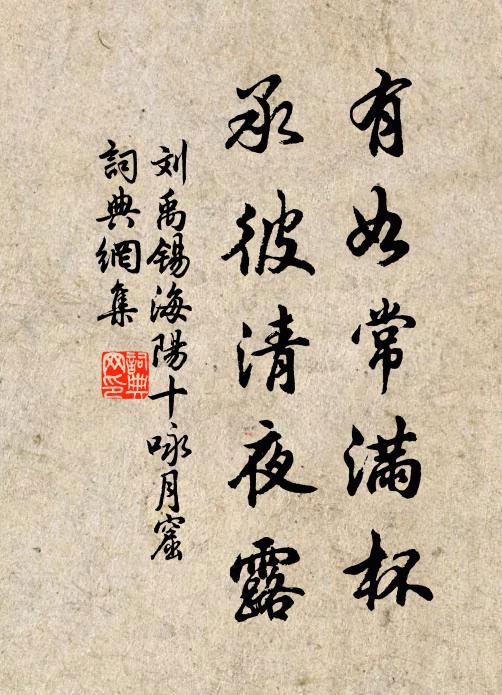 有如常滿杯
承彼清夜露
刘禹錫海陽十咏月窟
詞典網集
詞典网印